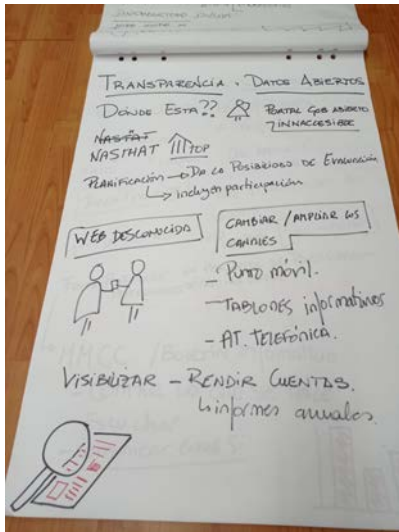 TRANSPARENCIA . DATOS ABIERTOS
DONDE ESTA??
PORTAL GOB ABIERTO
INNACCESIBLE
NASTAT
NASTHAT TOP
PLANIFICACIÓN → DA LA POSIBILIDAD DE EVALUACIÓN
↳ incluyen participación
WEB DESCONOCIDA
CAMBIAR / AMPLIAR LOS
CANALES
- PUNTO móvil.
- TABLONES informativos
- AT. TELEFÓNICA.
VISIBILIZAR - RENDIR CUENTAS.
↳ informes anuales.